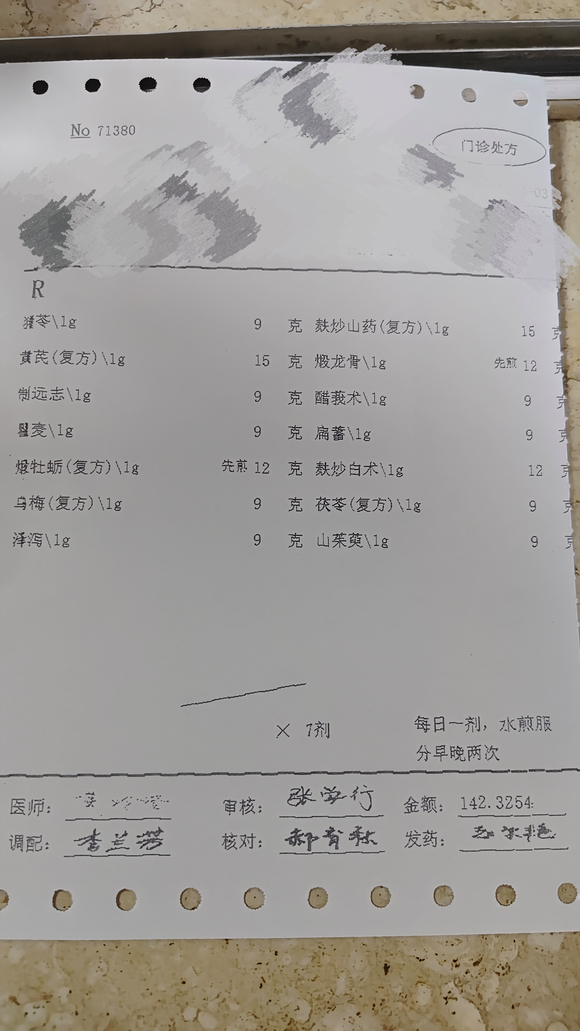 No 71380
门诊处方
R
猪苓\1g 9 克 麸炒山药(复方)\1g 15 克
黄芪(复方)\1g 15 克 煅龙骨\1g 先煎 12 克
制远志\1g 9 克 醋莪术\1g 9 克
瞿麦\1g 9 克 萹蓄\1g 9 克
煅牡蛎(复方)\1g 先煎 12 克 麸炒白术\1g 12 克
乌梅(复方)\1g 9 克 茯苓(复方)\1g 9 克
泽泻\1g 9 克 山茱萸\1g 9 克
× 7剂 每日一剂，水煎服
分早晚两次
医师： 审核： 金额： 142.3254
调配： 李兰芳 核对： 发药：